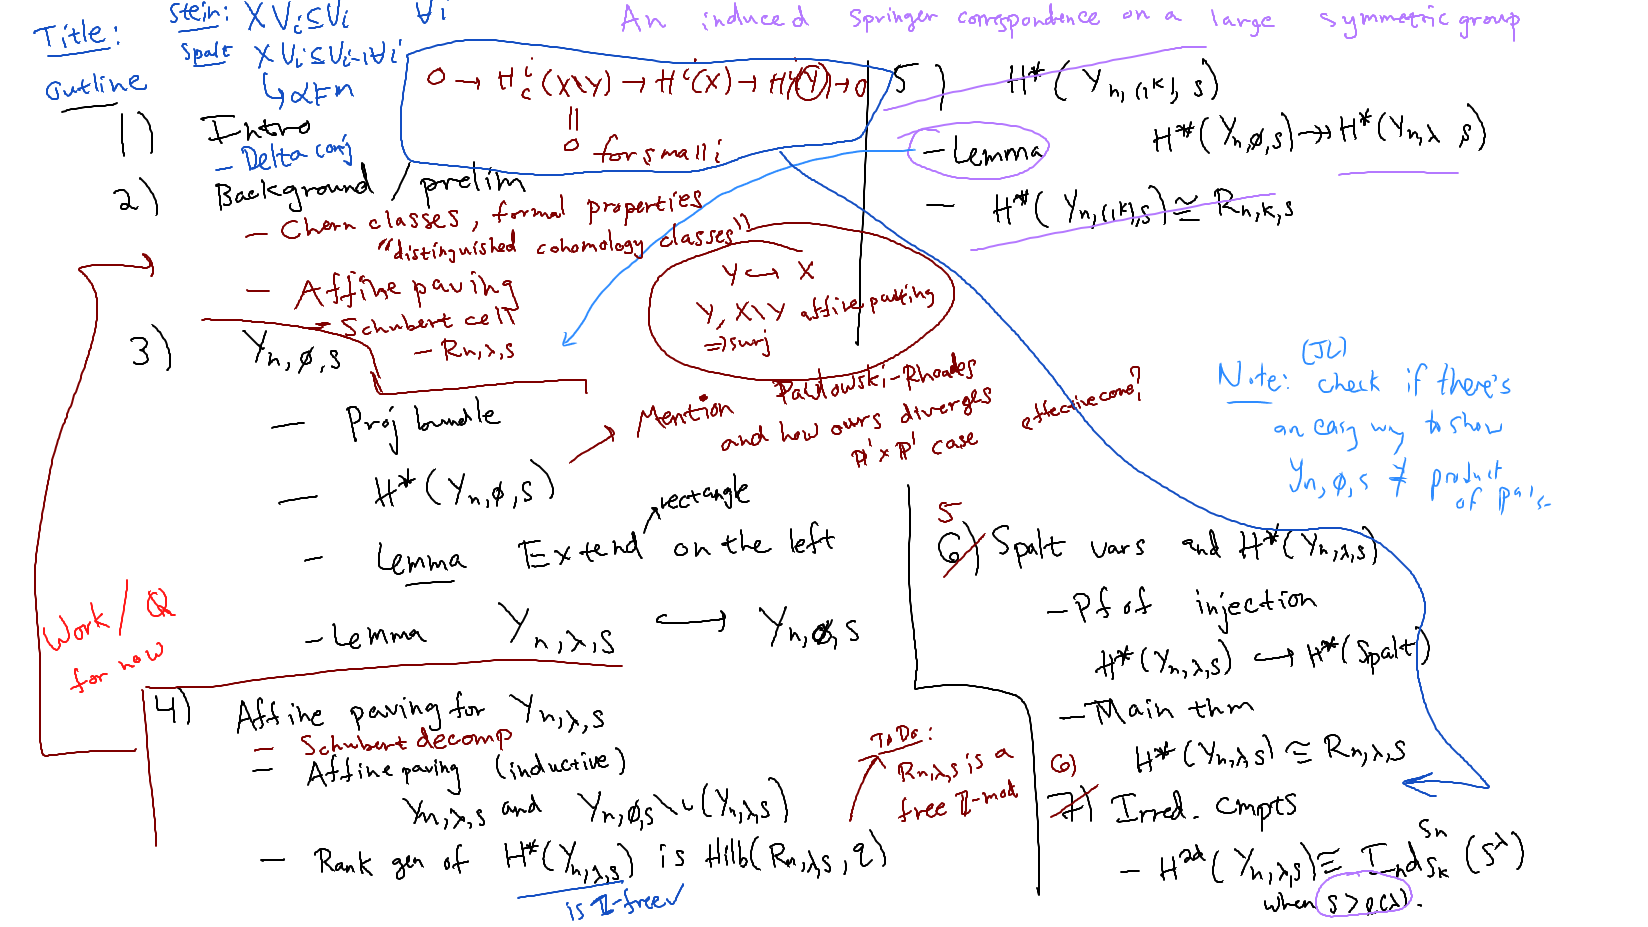 Title:
Stein: X V_i ⊆ V_i ∀i
Spalt X V_i ⊆ V_{i-1} ∀i
↳ α ⊨ n
An induced Springer correspondence on a large symmetric group
Outline
1) Intro
- Delta conj
0 → H^i_c (X\Y) → H^i(X) → H^i(Y) → 0
||
0 for small i
2) Background / prelim
- Chern classes, formal properties
"distinguished cohomology classes"
- Affine paving
- Schubert cell
- R_{n,λ,s}
Y ↪ X
Y, X\Y affine paving
⇒ surj
3) Y_{n,ø,s}
- Proj bundle
- H*(Y_{n,ø,s})
→ Mention Pawlowski-Rhoades
and how ours diverges
P¹ × P¹ case
effective cone?
- Lemma Extend on the left
rectangle
- Lemma Y_{n,λ,s} ↪ Y_{n,ø,s}
Work / Q
for now
4) Affine paving for Y_{n,λ,s}
- Schubert decomp
- Affine paving (inductive)
Y_{n,λ,s} and Y_{n,ø,s} \ ι(Y_{n,λ,s})
- Rank gen of H*(Y_{n,λ,s}) is Hilb(R_{n,λ,s}, q)
is Z-free ✓
To Do:
R_{n,λ,s} is a
free Z-mod
5) H*(Y_{n,(1^k),s})
H*(Y_{n,ø,s}) ↠ H*(Y_{n,λ,s})
- Lemma
- H*(Y_{n,(1^k),s}) ≅ R_{n,k,s}
Note: (JL) check if there's
an easy way to show
Y_{n,ø,s} ≠ product
of P^a's
5
6) Spalt vars and H*(Y_{n,λ,s})
- Pf of injection
H*(Y_{n,λ,s}) ↪ H*(Spalt)
- Main thm
H*(Y_{n,λ,s}) ≅ R_{n,λ,s}
6)
7) Irred. cmpts
- H^{2d}(Y_{n,λ,s}) ≅ Ind_{S_k}^{S_n} (S^λ)
when s > ℓ(λ).